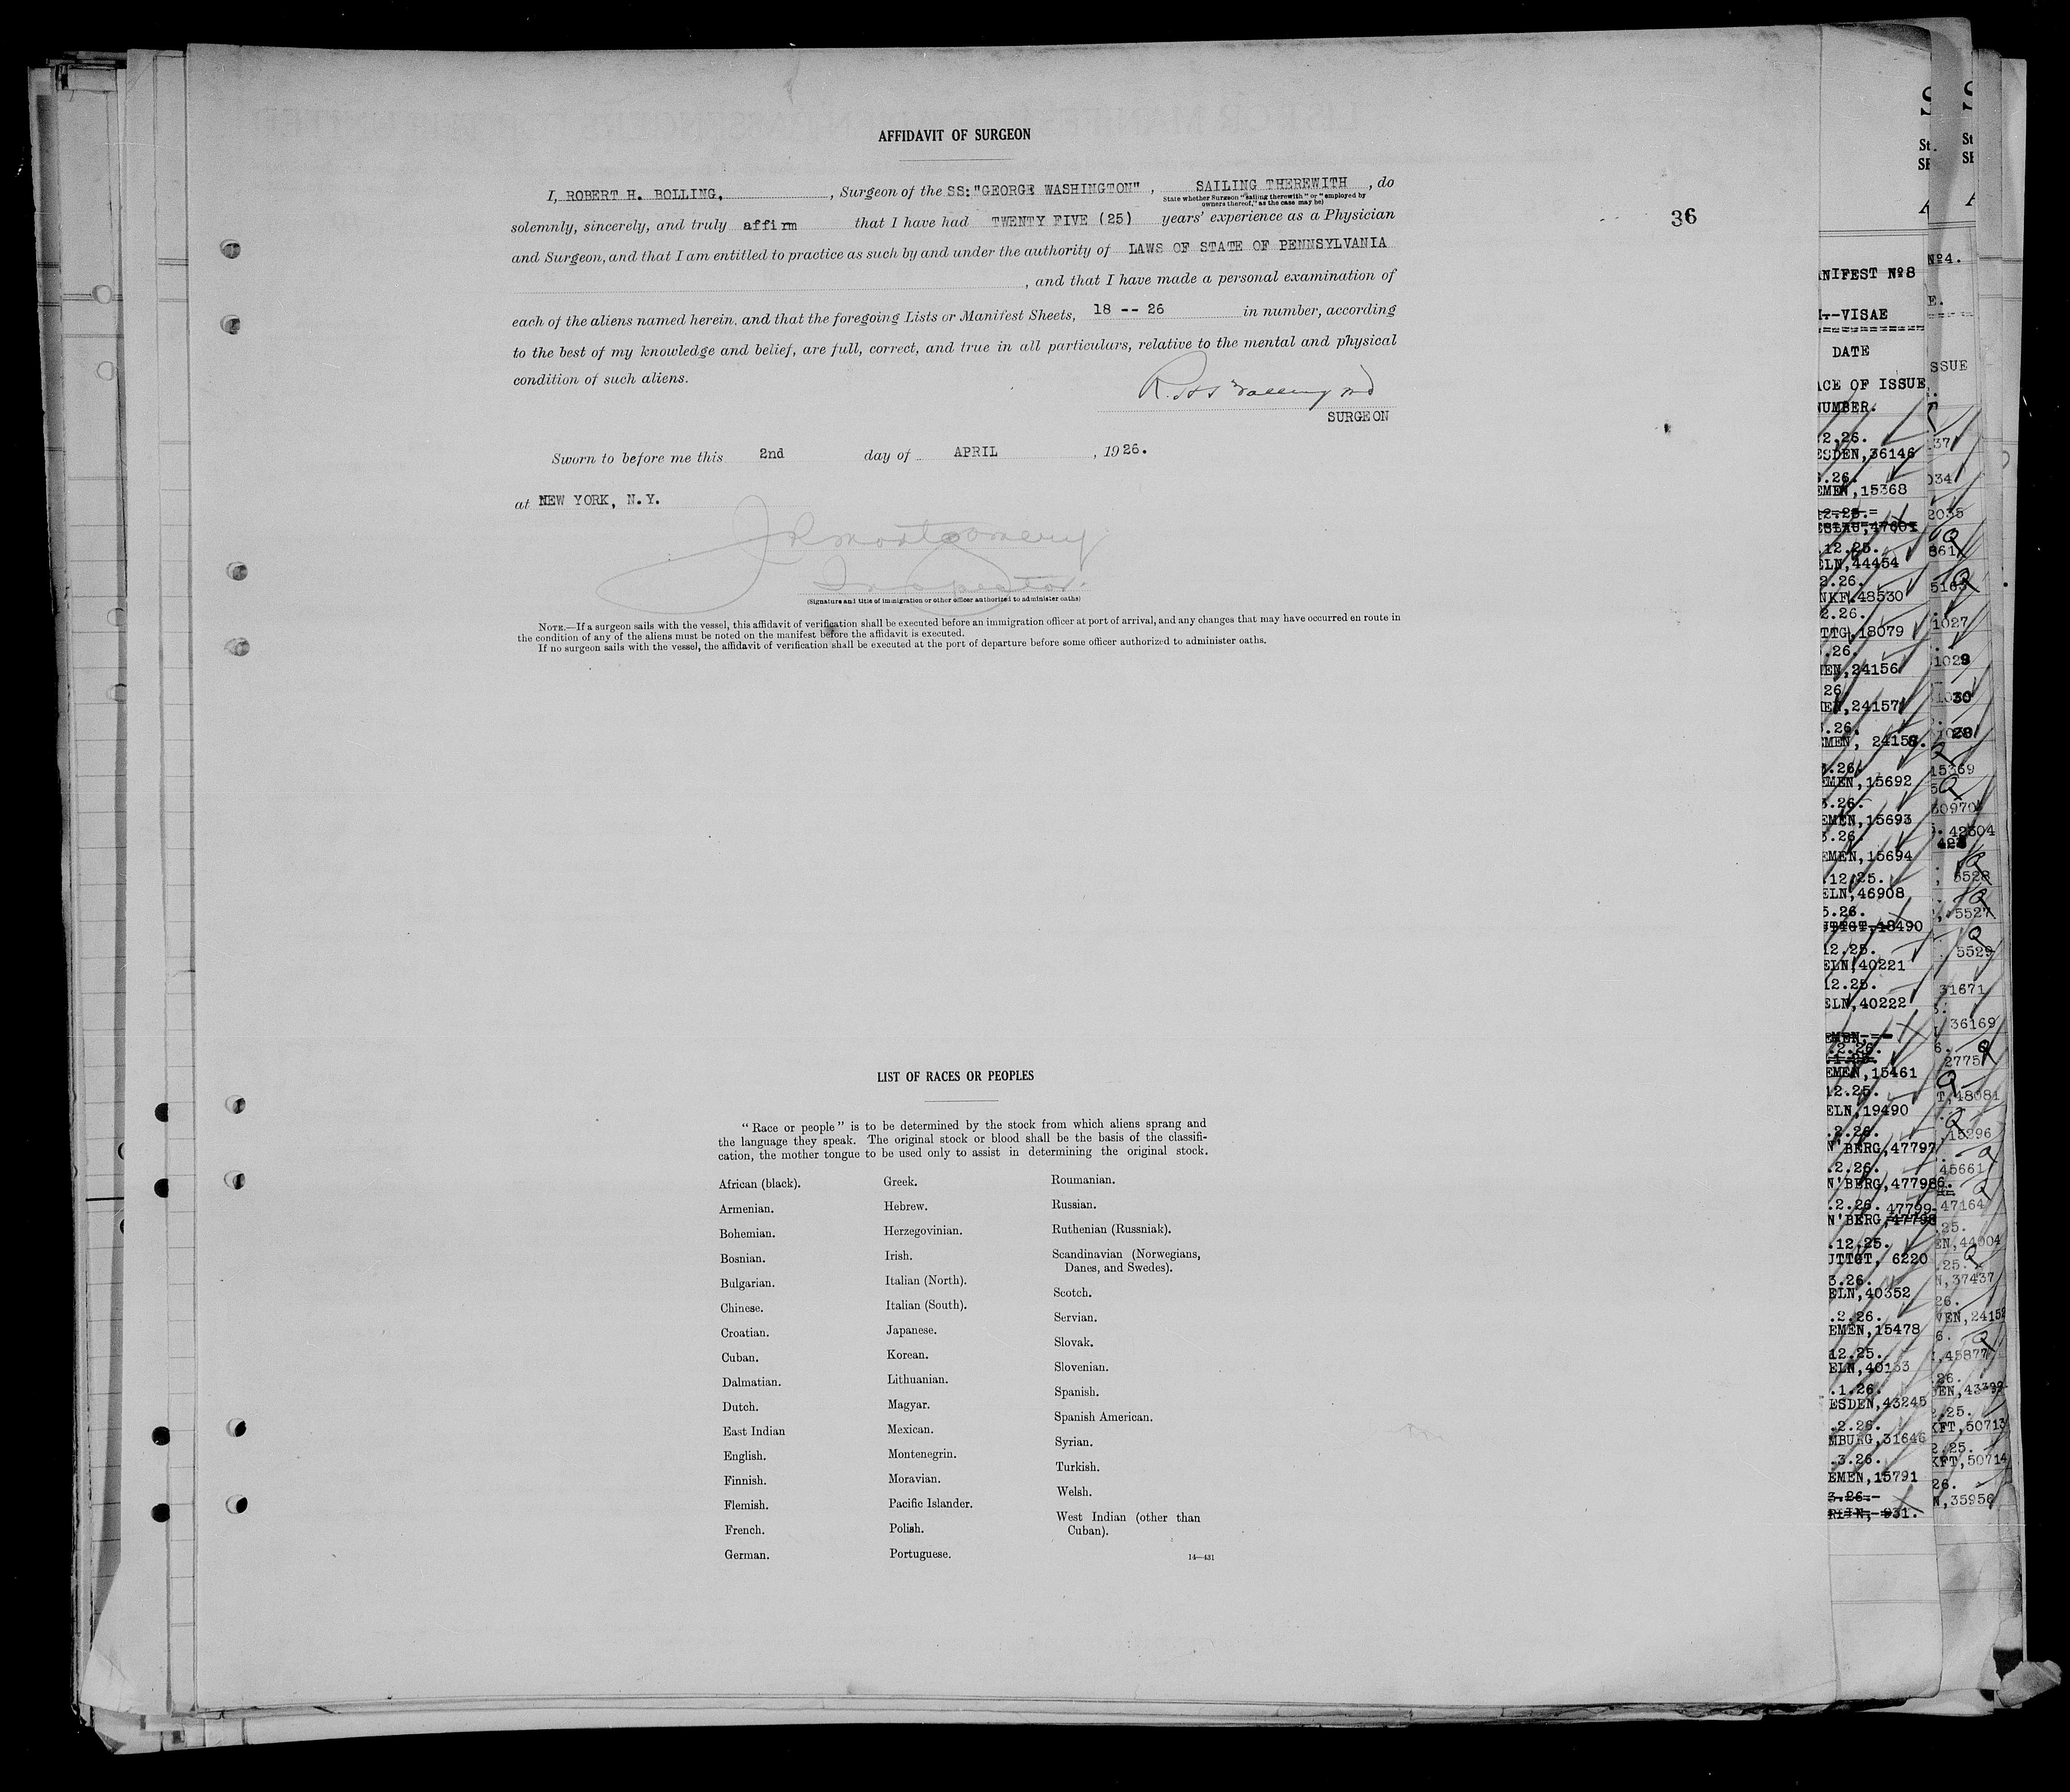 AFFIDAVIT OF SURGEON
I, ROBERT H. BOLLING, , Surgeon of the SS: "GEORGE WASHINGTON" , SAILING THEREWITH , do
State whether Surgeon "sailing therewith" or "employed by
owners thereof," as the case may be)
solemnly, sincerely, and truly affirm that I have had TWENTY FIVE (25) years' experience as a Physician
36
and Surgeon, and that I am entitled to practice as such by and under the authority of LAWS OF STATE OF PENNSYLVANIA
, and that I have made a personal examination of
each of the aliens named herein, and that the foregoing Lists or Manifest Sheets, 18 -- 26 in number, according
to the best of my knowledge and belief, are full, correct, and true in all particulars, relative to the mental and physical
condition of such aliens.
R. H. Bolling MD
SURGEON
Sworn to before me this 2nd day of APRIL , 1926.
at NEW YORK, N.Y.
J R Montgomery
Inspector
(Signature and title of immigration or other officer authorized to administer oaths)
NOTE.—If a surgeon sails with the vessel, this affidavit of verification shall be executed before an immigration officer at port of arrival, and any changes that may have occurred en route in
the condition of any of the aliens must be noted on the manifest before the affidavit is executed.
If no surgeon sails with the vessel, the affidavit of verification shall be executed at the port of departure before some officer authorized to administer oaths.
LIST OF RACES OR PEOPLES
"Race or people" is to be determined by the stock from which aliens sprang and
the language they speak. The original stock or blood shall be the basis of the classifi-
cation, the mother tongue to be used only to assist in determining the original stock.
African (black).
Armenian.
Bohemian.
Bosnian.
Bulgarian.
Chinese.
Croatian.
Cuban.
Dalmatian.
Dutch.
East Indian
English.
Finnish.
Flemish.
French.
German.
Greek.
Hebrew.
Herzegovinian.
Irish.
Italian (North).
Italian (South).
Japanese.
Korean.
Lithuanian.
Magyar.
Mexican.
Montenegrin.
Moravian.
Pacific Islander.
Polish.
Portuguese.
Roumanian.
Russian.
Ruthenian (Russniak).
Scandinavian (Norwegians,
Danes, and Swedes).
Scotch.
Servian.
Slovak.
Slovenian.
Spanish.
Spanish American.
Syrian.
Turkish.
Welsh.
West Indian (other than
Cuban).
14—431
NIFEST №8
-VISAE
DATE
ACE OF ISSUE
NUMBER.
2.26.
ESDEN,36146
EMEN,15368
.12.25.
ELN,44454
2.26.
NKF.48530
2.26.
TTG,18079
.26.
EN,24156
26
EN,24157
.26.
EMEN, 24158.
.26.
EMEN,15692
3.26.
EMEN,15693
3.26.
EMEN,15694
.12.25.
ELN,46908
5.26.
UTTGT,48490
12.25.
ELN,40221
12.25.
ELN,40222
.2.26.
EMEN,15461
12.25.
ELN,19490
.2.26.
N'BERG,47797
.2.26.
N'BERG,47798
.2.26. 47799
N'BERG,47798
.12.25.
UTTGT, 6220
3.26.
ELN,40352
.2.26.
EMEN,15478
12.25.
ELN,40133
.1.26.
ESDEN,43245
.2.26.
MBURG,31646
.3.26.
EMEN,15791
3.26.
RLIN,-931.
№4.
E.
SSUE
37
034
2035
861
1027
1029
1030
15369
60970
42304
5528
5527
5529
31671
36169
2775
T,48081
,15296
45661
47164
.25.
EN,44004
.25.
N,37437
26.
VEN,24152
6.
,45877
.26.
EN,43399
2.25.
KFT,50713
2.25.
KFT,50714
26.
N,35956